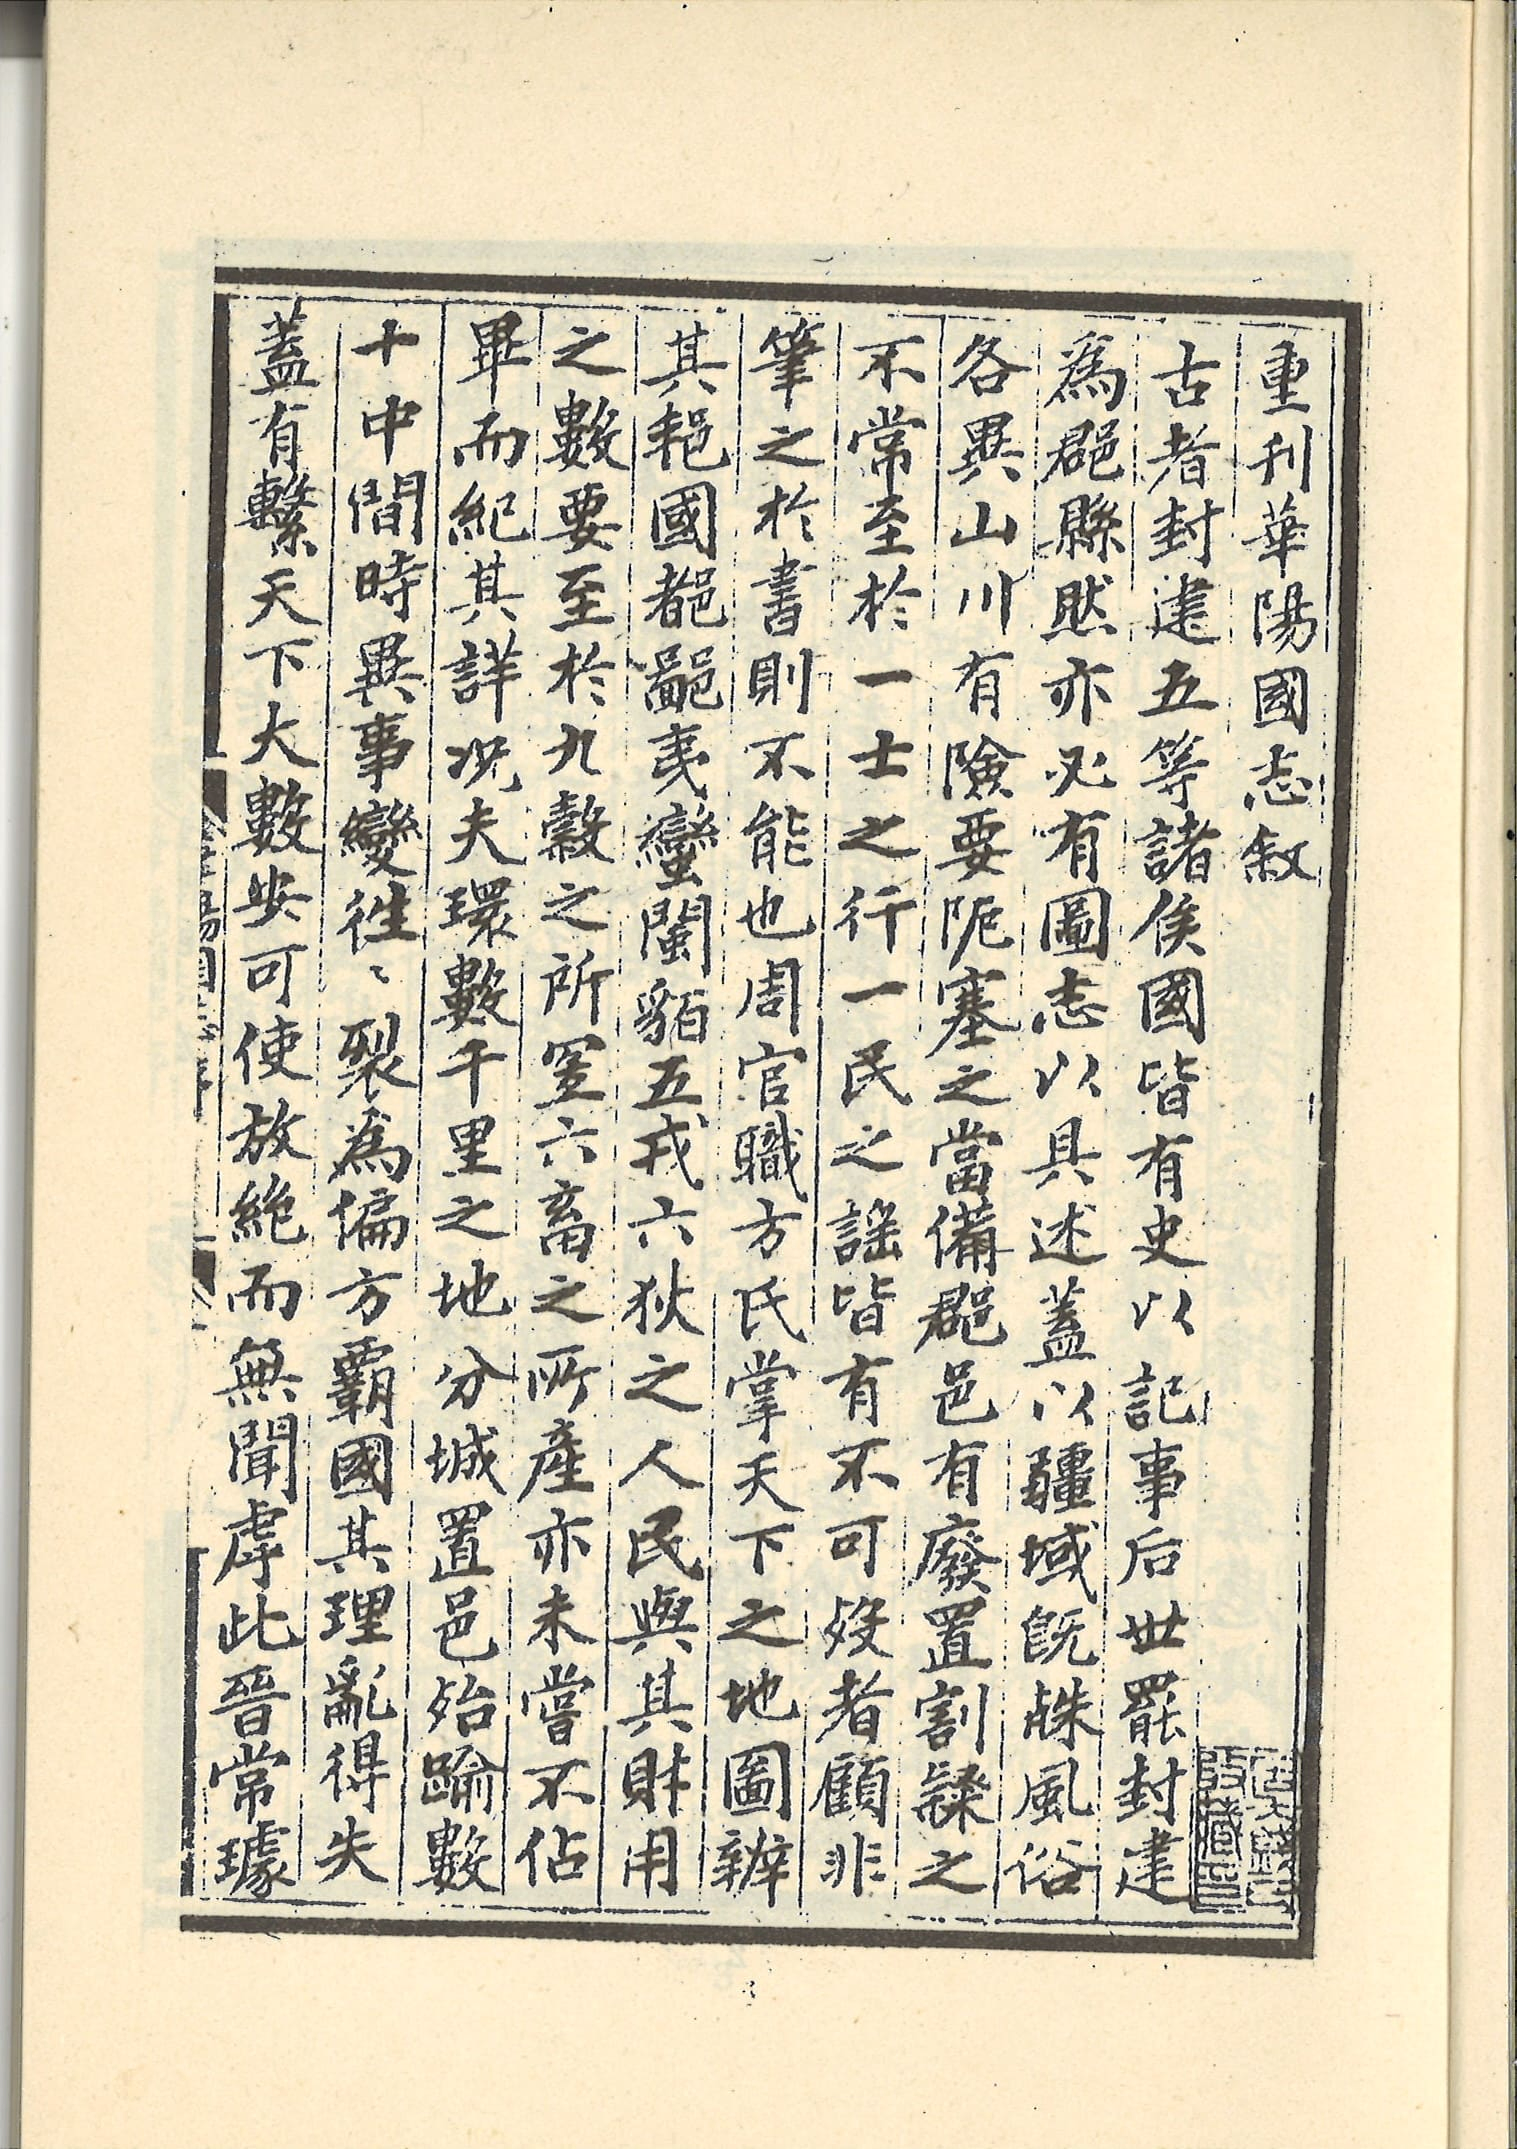 重刊華陽國志叙
古者封建五等諸侯國皆有史以記事后世罷封建
爲郡縣然亦必有圖志以具述蓋以疆域旣殊風俗
各異山川有險要阨塞之當備郡邑有廢置割隸之
不常至於一士之行一民之謡皆有不可歿者顧非
筆之於書則不能也周官職方氏掌天下之地圖辨
其邦國都鄙夷蠻閩貊五戎六狄之人民與其財用
之數要至於九穀之所冝六畜之所產亦未嘗不佔
畢而紀其詳况夫環數千里之地分城置邑殆踰數
十中間時異事變徃〻裂爲偏方霸國其理亂得失
蓋有繫天下大數安可使放絶而無聞虖此晉常璩
3